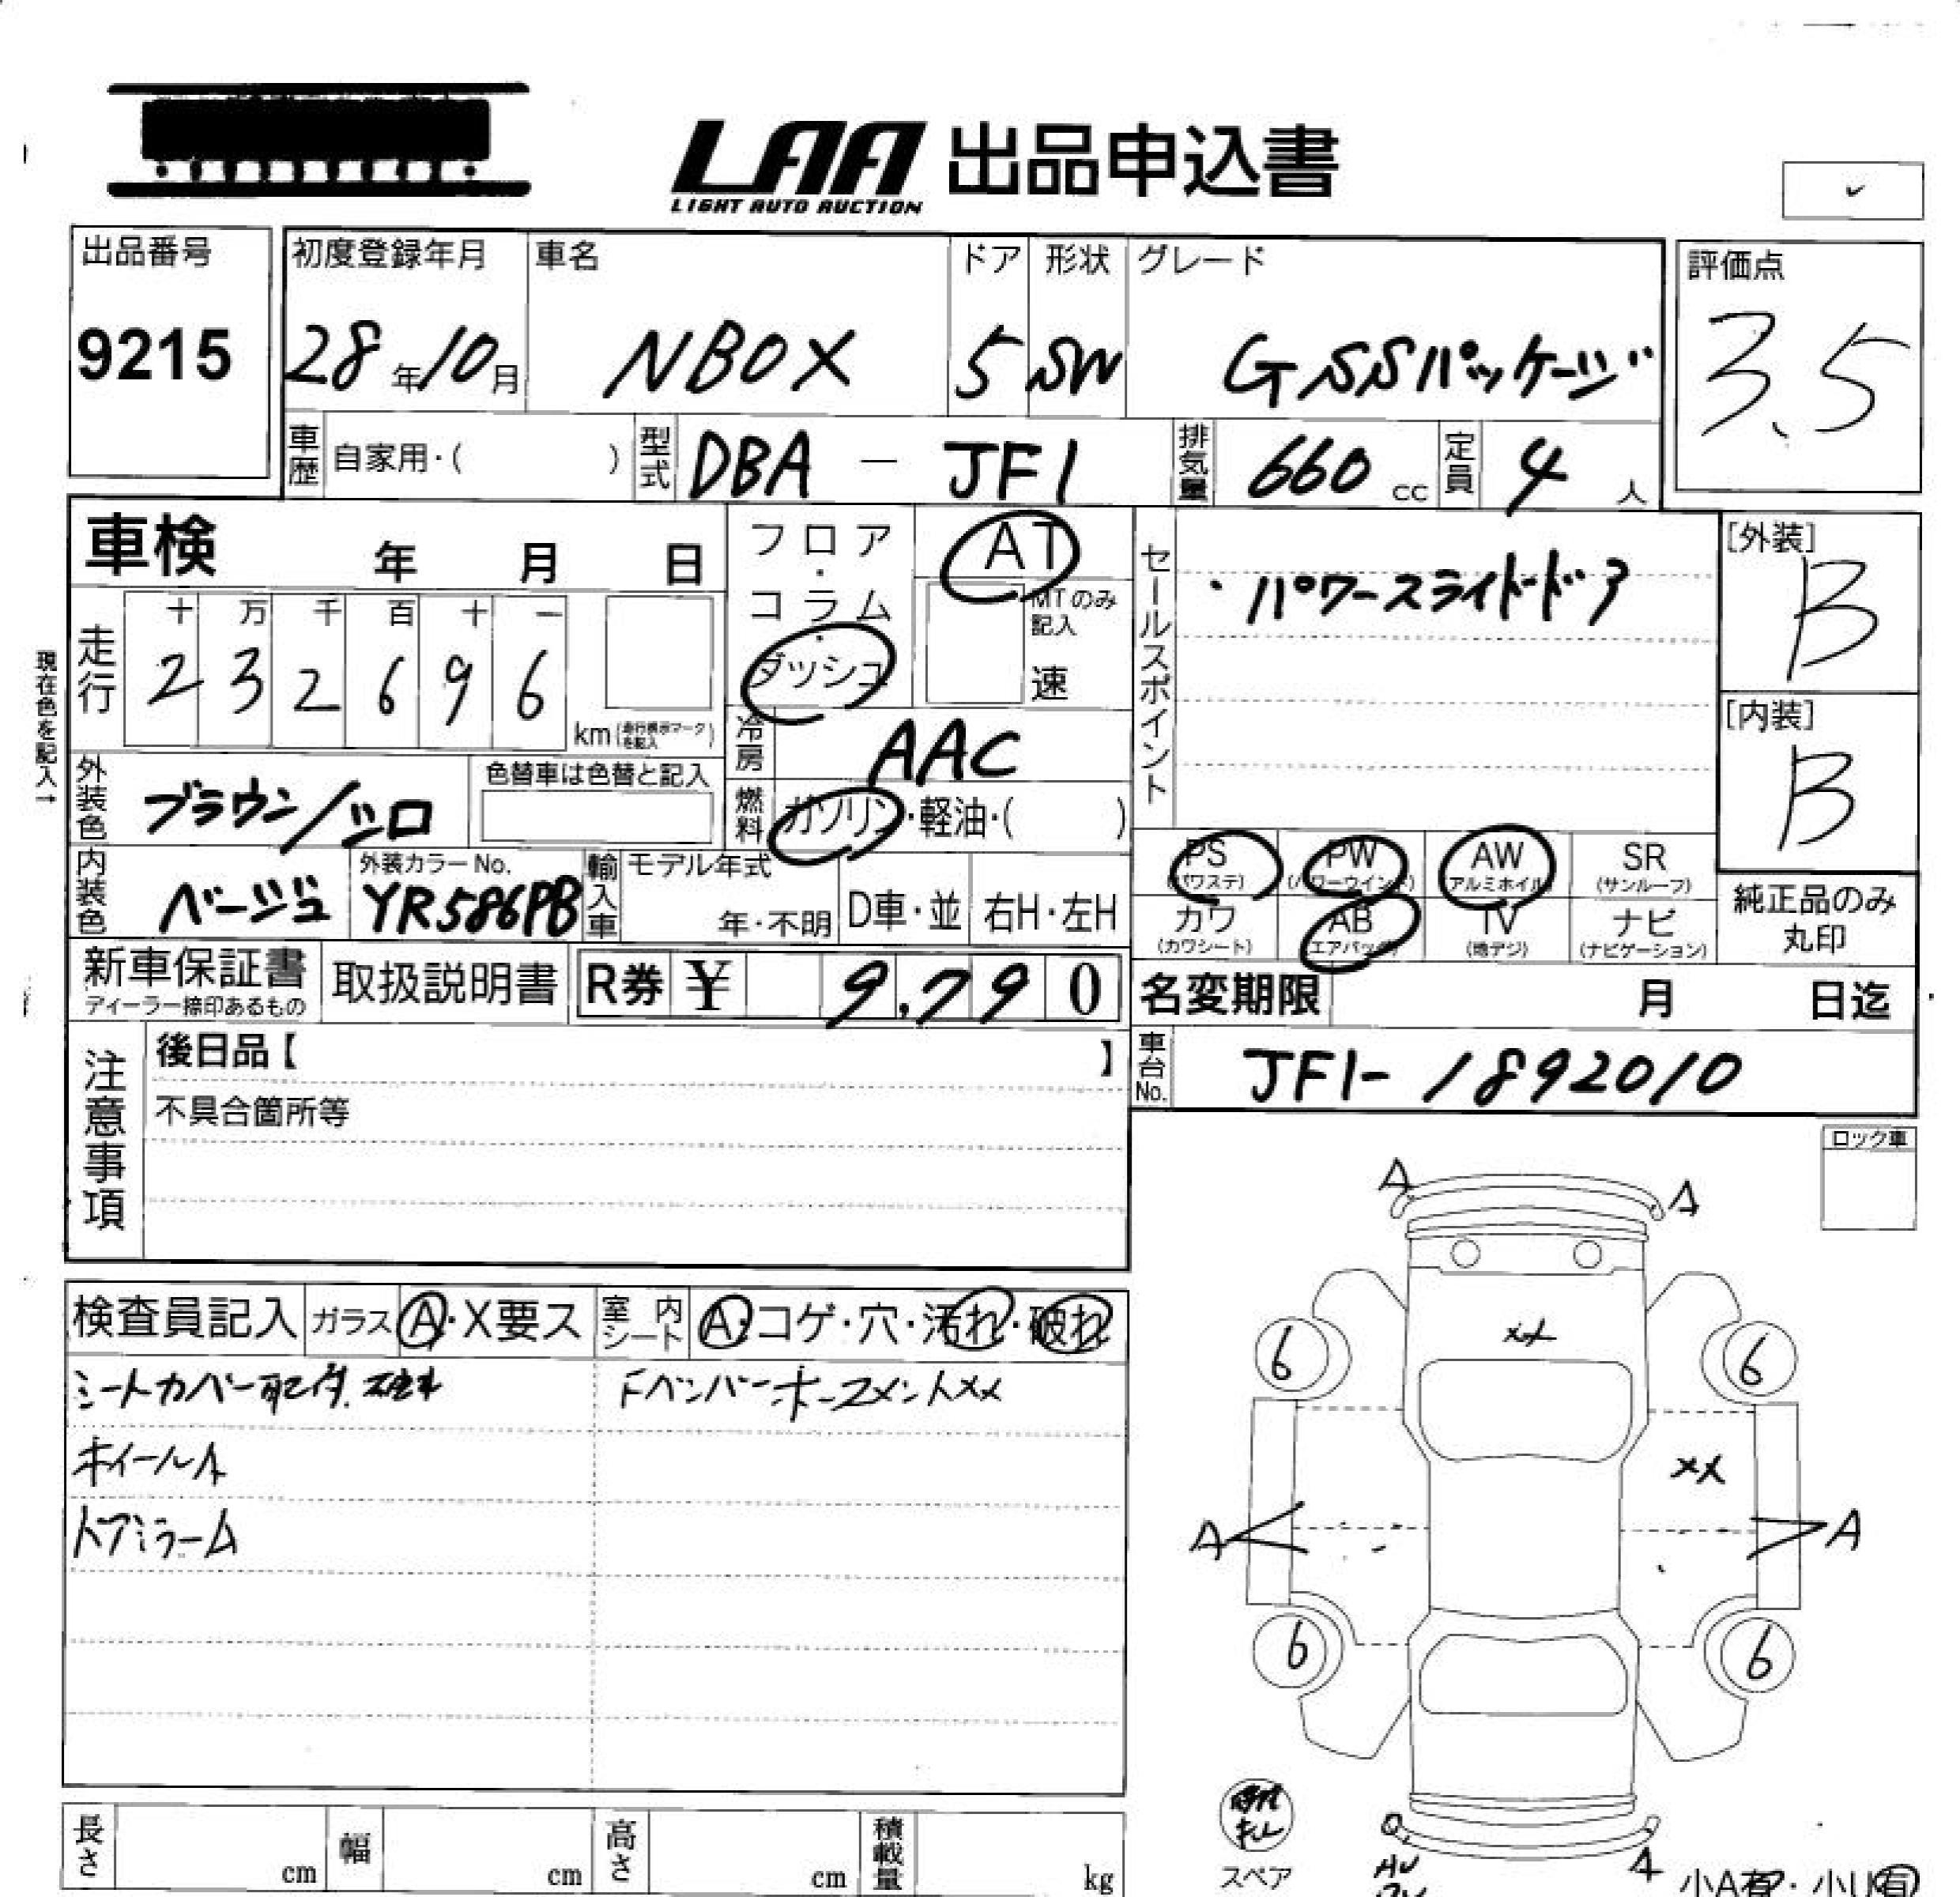 LAA 出品申込書
LIGHT AUTO AUCTION
✓
出品番号
9215
初度登録年月 車名 ドア 形状 グレード
28年10月 NBOX 5 SW G SSパッケージ
評価点
3.5
車歴 自家用・( ) 型式 DBA - JF1 排気量 660 cc 定員 4 人
車検 年 月 日
フロア・コラム・ダッシュ
AT
MTのみ記入
速
セールスポイント
・パワースライドドア
[外装]
B
[内装]
B
現在色を記入→
走行 十 万 千 百 十 一
2 3 2 6 9 6
km(走行表示マークを記入)
冷房 AAC
外装色 ブラウン/シロ
色替車は色替と記入
燃料 ガソリン・軽油・( )
内装色 ベージュ
外装カラーNo.
YR586PB
輸入車 モデル年式
年・不明 D車・並 右H・左H
PS (パワステ) PW (パワーウインド) AW (アルミホイル) SR (サンルーフ)
カワ (カワシート) AB (エアバッグ) TV (地デジ) ナビ (ナビゲーション)
純正品のみ
丸印
新車保証書
ディーラー捺印あるもの
取扱説明書 R券 ¥ 9,790
名変期限 月 日迄
注意事項
後日品【 】
不具合箇所等
車台No. JF1-1892010
ロック車
A A
検査員記入 ガラス A・X要ス 室内シート A・コゲ・穴・汚れ・破れ
シートカバー取付
FバンパーホースメントXX
ホイールA
ドアミラーA
XX
6 6
XX
A A
6 6
スペア
A
長さ cm 幅 cm 高さ cm 積載量 kg
小A有・小U有